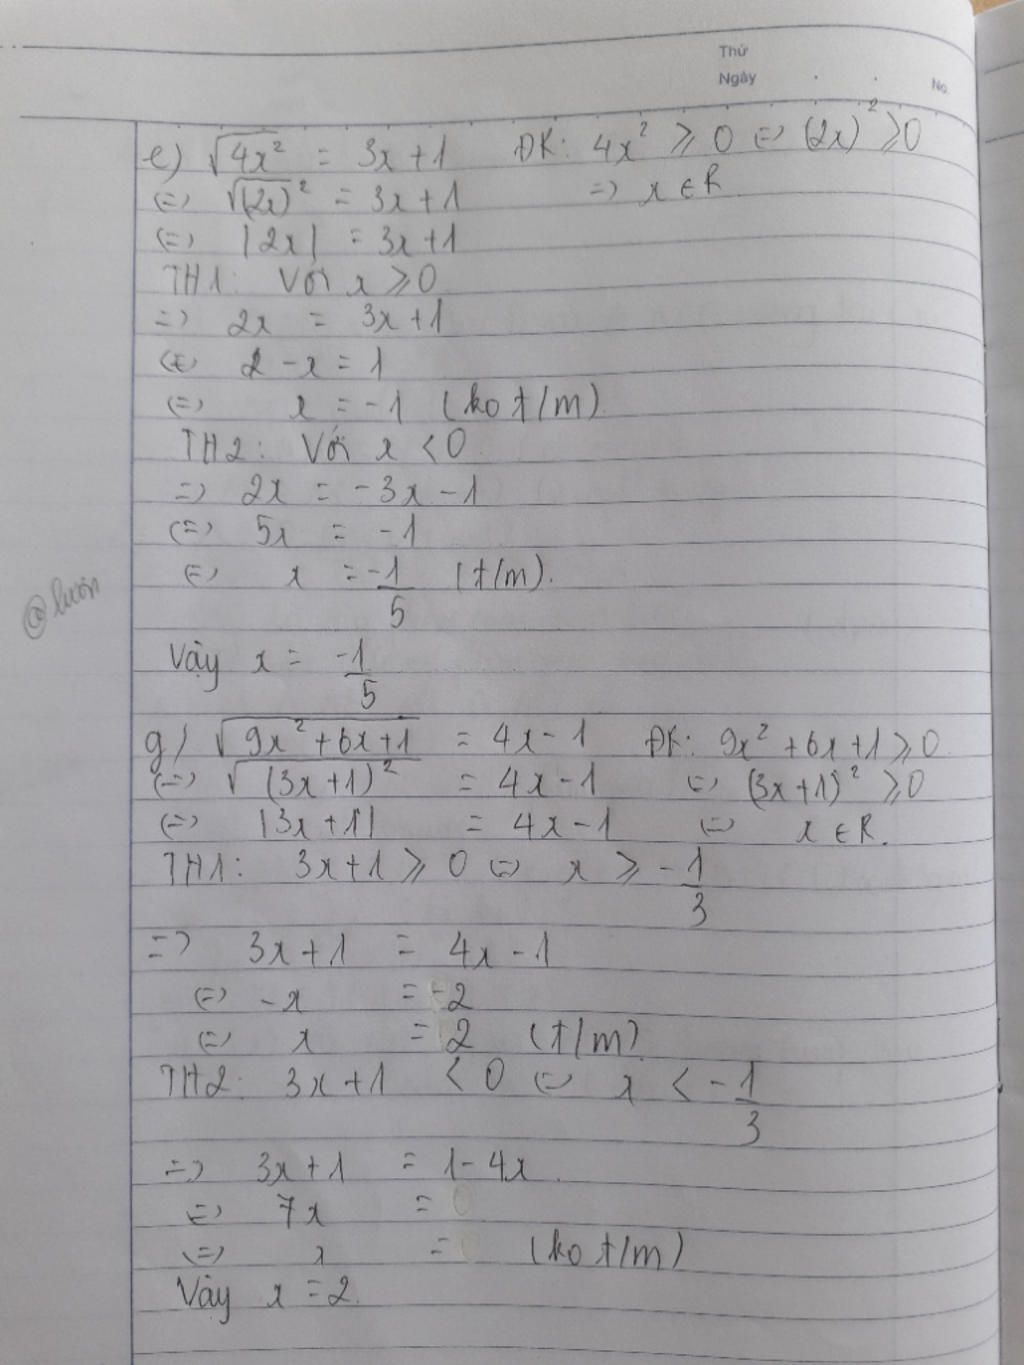 Thứ
Ngày
No.
e) √4x² = 3x+1 ĐK: 4x² ≥ 0 ⇔ (2x)² ≥ 0
⇔ √(2x)² = 3x+1 ⇒ x ∈ R
⇔ |2x| = 3x+1
TH1: Với x ≥ 0
⇒ 2x = 3x+1
⇔ -x = 1
⇔ x = -1 (ko t/m)
TH2: Với x < 0
⇒ 2x = -3x-1
⇔ 5x = -1
⇔ x = -1/5 (t/m).
@lươn
Vậy x = -1/5
g) √9x²+6x+1 = 4x-1 ĐK: 9x²+6x+1 ≥ 0
⇔ √(3x+1)² = 4x-1 ⇔ (3x+1)² ≥ 0
⇔ |3x+1| = 4x-1 ⇔ x ∈ R.
TH1: 3x+1 ≥ 0 ⇔ x ≥ -1/3
⇒ 3x+1 = 4x-1
⇔ -x = -2
⇔ x = 2 (t/m)
TH2: 3x+1 < 0 ⇔ x < -1/3
⇒ 3x+1 = 1-4x
⇔ 7x = 0
⇔ x = 0 (ko t/m)
Vậy x = 2.